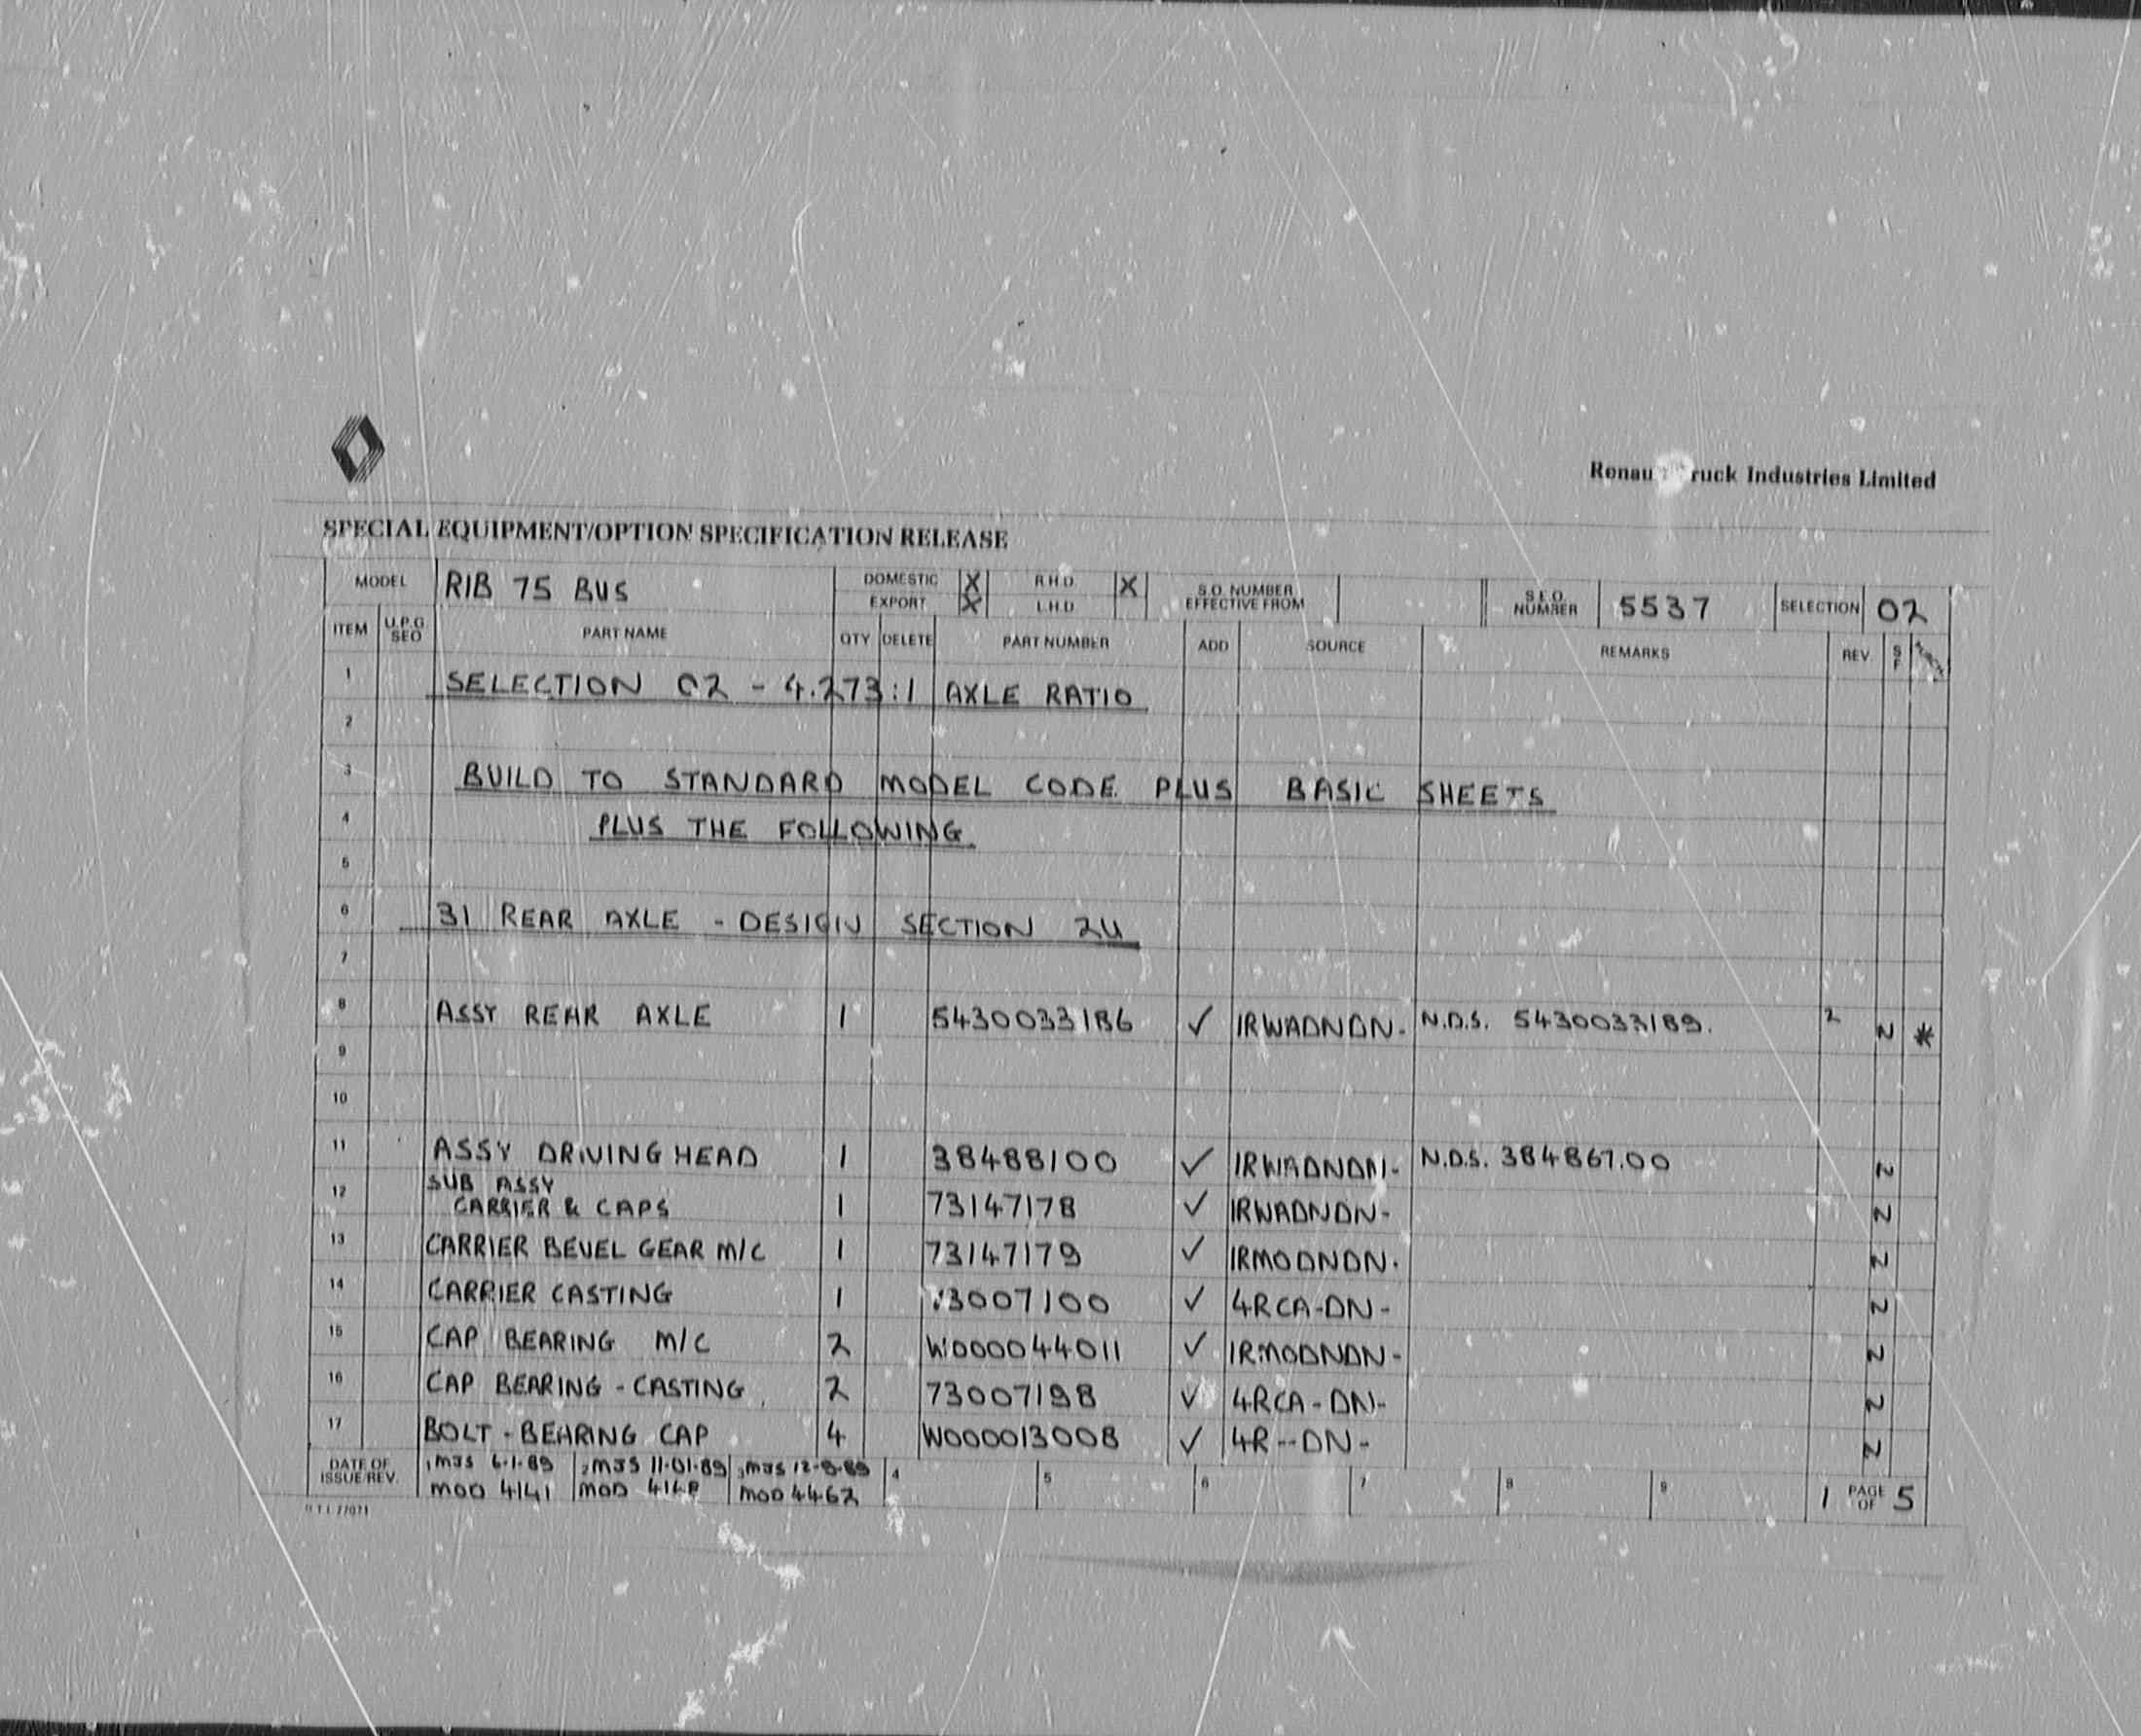 Renau ruck Industries Limited
SPECIAL EQUIPMENT/OPTION SPECIFICATION RELEASE
MODEL RIB 75 BUS DOMESTIC X R.H.D. X S.O. NUMBER S.E.O. NUMBER 5537 SELECTION 02
EXPORT X L.H.D. EFFECTIVE FROM
ITEM U.P.G SEO PART NAME QTY DELETE PART NUMBER ADD SOURCE REMARKS REV. S F
1 SELECTION 02 - 4.273:1 AXLE RATIO
2
3 BUILD TO STANDARD MODEL CODE PLUS BASIC SHEETS
4 PLUS THE FOLLOWING.
5
6 31 REAR AXLE - DESIGN SECTION 2U
7
8 ASSY REAR AXLE 1 5430033186 ✓ IRWADNDN- N.D.S. 5430033189. 2 N *
9
10
11 ASSY DRIVING HEAD 1 38488100 ✓ IRWADNDN- N.D.S. 384867.00 N
12 SUB ASSY
CARRIER & CAPS 1 73147178 ✓ IRWADNDN- N
13 CARRIER BEVEL GEAR M/C 1 73147179 ✓ IRMODNDN. N
14 CARRIER CASTING 1 73007100 ✓ 4RCA-DN- N
15 CAP BEARING M/C 2 W000044011 ✓ IRMODNDN- N
16 CAP BEARING - CASTING 2 73007198 ✓ 4RCA-DN- N
17 BOLT - BEARING CAP 4 W000013008 ✓ 4R--DN- N
DATE OF ISSUE/REV. 1 MJS 6.1.89 2 MJS 11.01.89 3 MJS 12-9-89 4 5 6 7 8 9 1 PAGE OF 5
MOD 4141 MOD MOD 4462